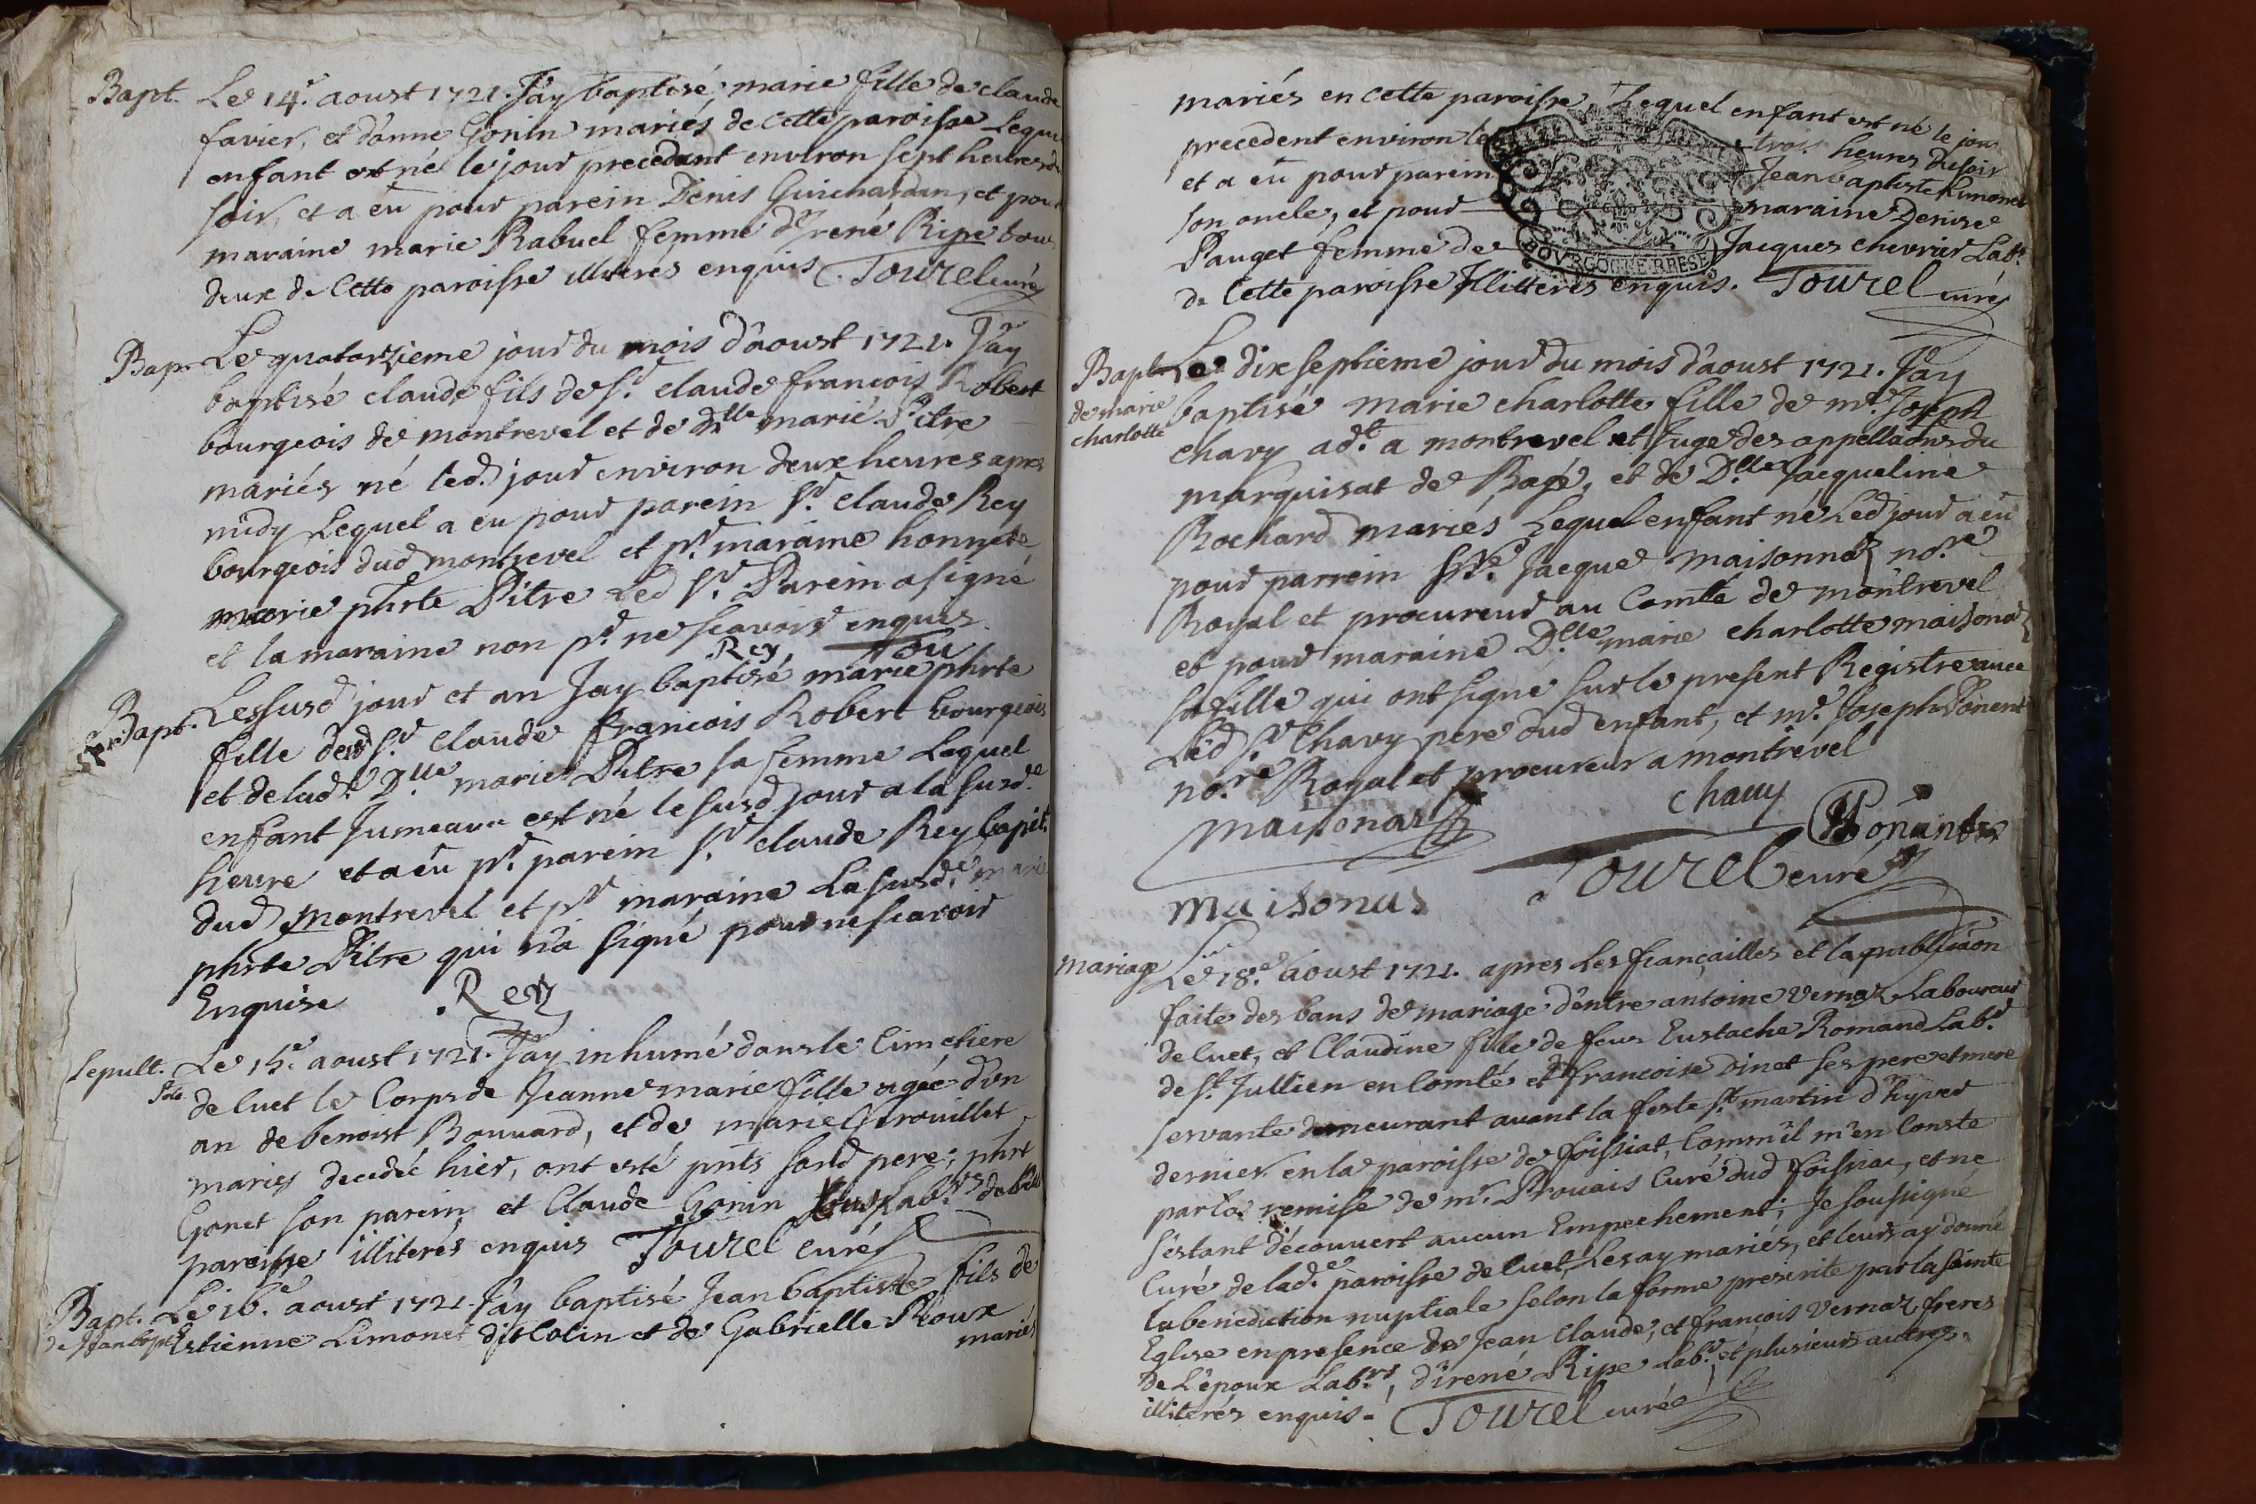 Bapt. Le 14.e aoust 1721. J'ay baptisé marie fille de claude
favier, et d'anne Gonin mariés de cette paroisse Lequel
enfant est né le jour precedant environ sept heures du
soir, et a eu pour parein Denis Guichardan, et pour
maraine marie Rabuel femme d'irené Ripe tous
deux de Cette paroisse illiterés enquis. Tourel curé
Bap. Le quatorzieme jour du mois d'aoust 1721. J'ay
baptisé claude fils de s.r claude francois Robert
bourgeois de montrevel et de dlle marie Pitre
mariés né led. jour environ deux heures apres
midy Lequel a eu pour parein s.r claude Rey
bourgeois dud montrevel et p.r maraine honnete
marie phrte Pitre Led s.r Parein a signé
et la maraine non p.r ne scavoir enquis.
Rey Tou
Bapt. Le susd jour et an Jay baptisé marie phrte
fille dud s.r claude francois Robert bourgeois
et de lad.e D.lle marie Pitre sa femme Laquel
enfant Jumeaux est né le susd jour a la susd.e
heure et a eu p.r parein s.r claude Rey bapt.
dud montrevel et p.r maraine La susd.e marie
phrte Pitre qui n'a signé pour ne scavoir
Enquise . Rey
Sepult. Le 15.e aoust 1721. J'ay inhumé dans le Cimetiere
de luet le Corps de Jeanne marie fille agée d'un
an de benoist Bouvard, et de marie Girouillet
mariés decedée hier, ont esté pnts sond pere, phrt
Gonet son parein et Claude Gonin tous Lab.rs de lad
paroisse illiterés enquis Tourel curé
Bapt. Le 16.e aoust 1721. J'ay baptisé Jean baptiste fils de
de Jean bapt Estienne Limonet dit Colin et de Gabrielle Roux
mariés
mariés en cette paroisse, Lequel enfant est né le jour
precedent environ les trois heures du soir
et a eu pour parein Jean baptiste Limonet
son oncle, et pour maraine Denise
Pauget femme de Jacques chevrier Lab.r
BOVRGOGNE BRESSE
de Cette paroisse Illiterés enquis. Tourel curé
Bapt Le dix septieme jour du mois d'aoust 1721. J'ay
de marie baptisé marie charlotte fille de m.e Joseph
charlotte chavy ad.t a montrevel et Juge des appellaõns du
marquisat de Bagé, et de D.lle Jacqueline
Rochard mariés Lequel enfant né Led jour a eu
pour parrein Jacque maisonnas no.re
Royal et procureur au Comté de montrevel
et pour maraine D.lle marie charlotte maisonas
sa fille qui ont signé sur le present Registre avec
Led s.r Chavy pere dud enfant, et m.e Joseph Ponent
no.re Royal et procureur a montrevel
maisonas chauy Ponant
maisonas Tourel curé
Mariage Le 18.e aoust 1721. apres Les fiançailles et la publicaõn
faite des bans de mariage d'entre antoine vernaz Laboureur
de luet, et Claudine fille de feus Eustache Romand Lab.r
de s.t Jullien en Comté et francoise Dinet ses pere et mere
servante demeurant avant la feste s.t martin d'hyver
dernier en la paroisse de foissiat, Comm'il m'en Conste
par la remise de m.r Prouais Curé dud foissiac, et ne
s'estant découvert aucun Empechement; Je soussigné
Curé de lad.e paroisse de luet, Les ay mariés, et leurs ay donné
la benediction nuptiale selon la forme prescrite par la sainte
Eglise en presence de Jean claude, et françois vernaz freres
De L'epoux Lab.rs, d'irené Ripe Lab.r, et plusieurs autres.
illiterés enquis. Tourel curé